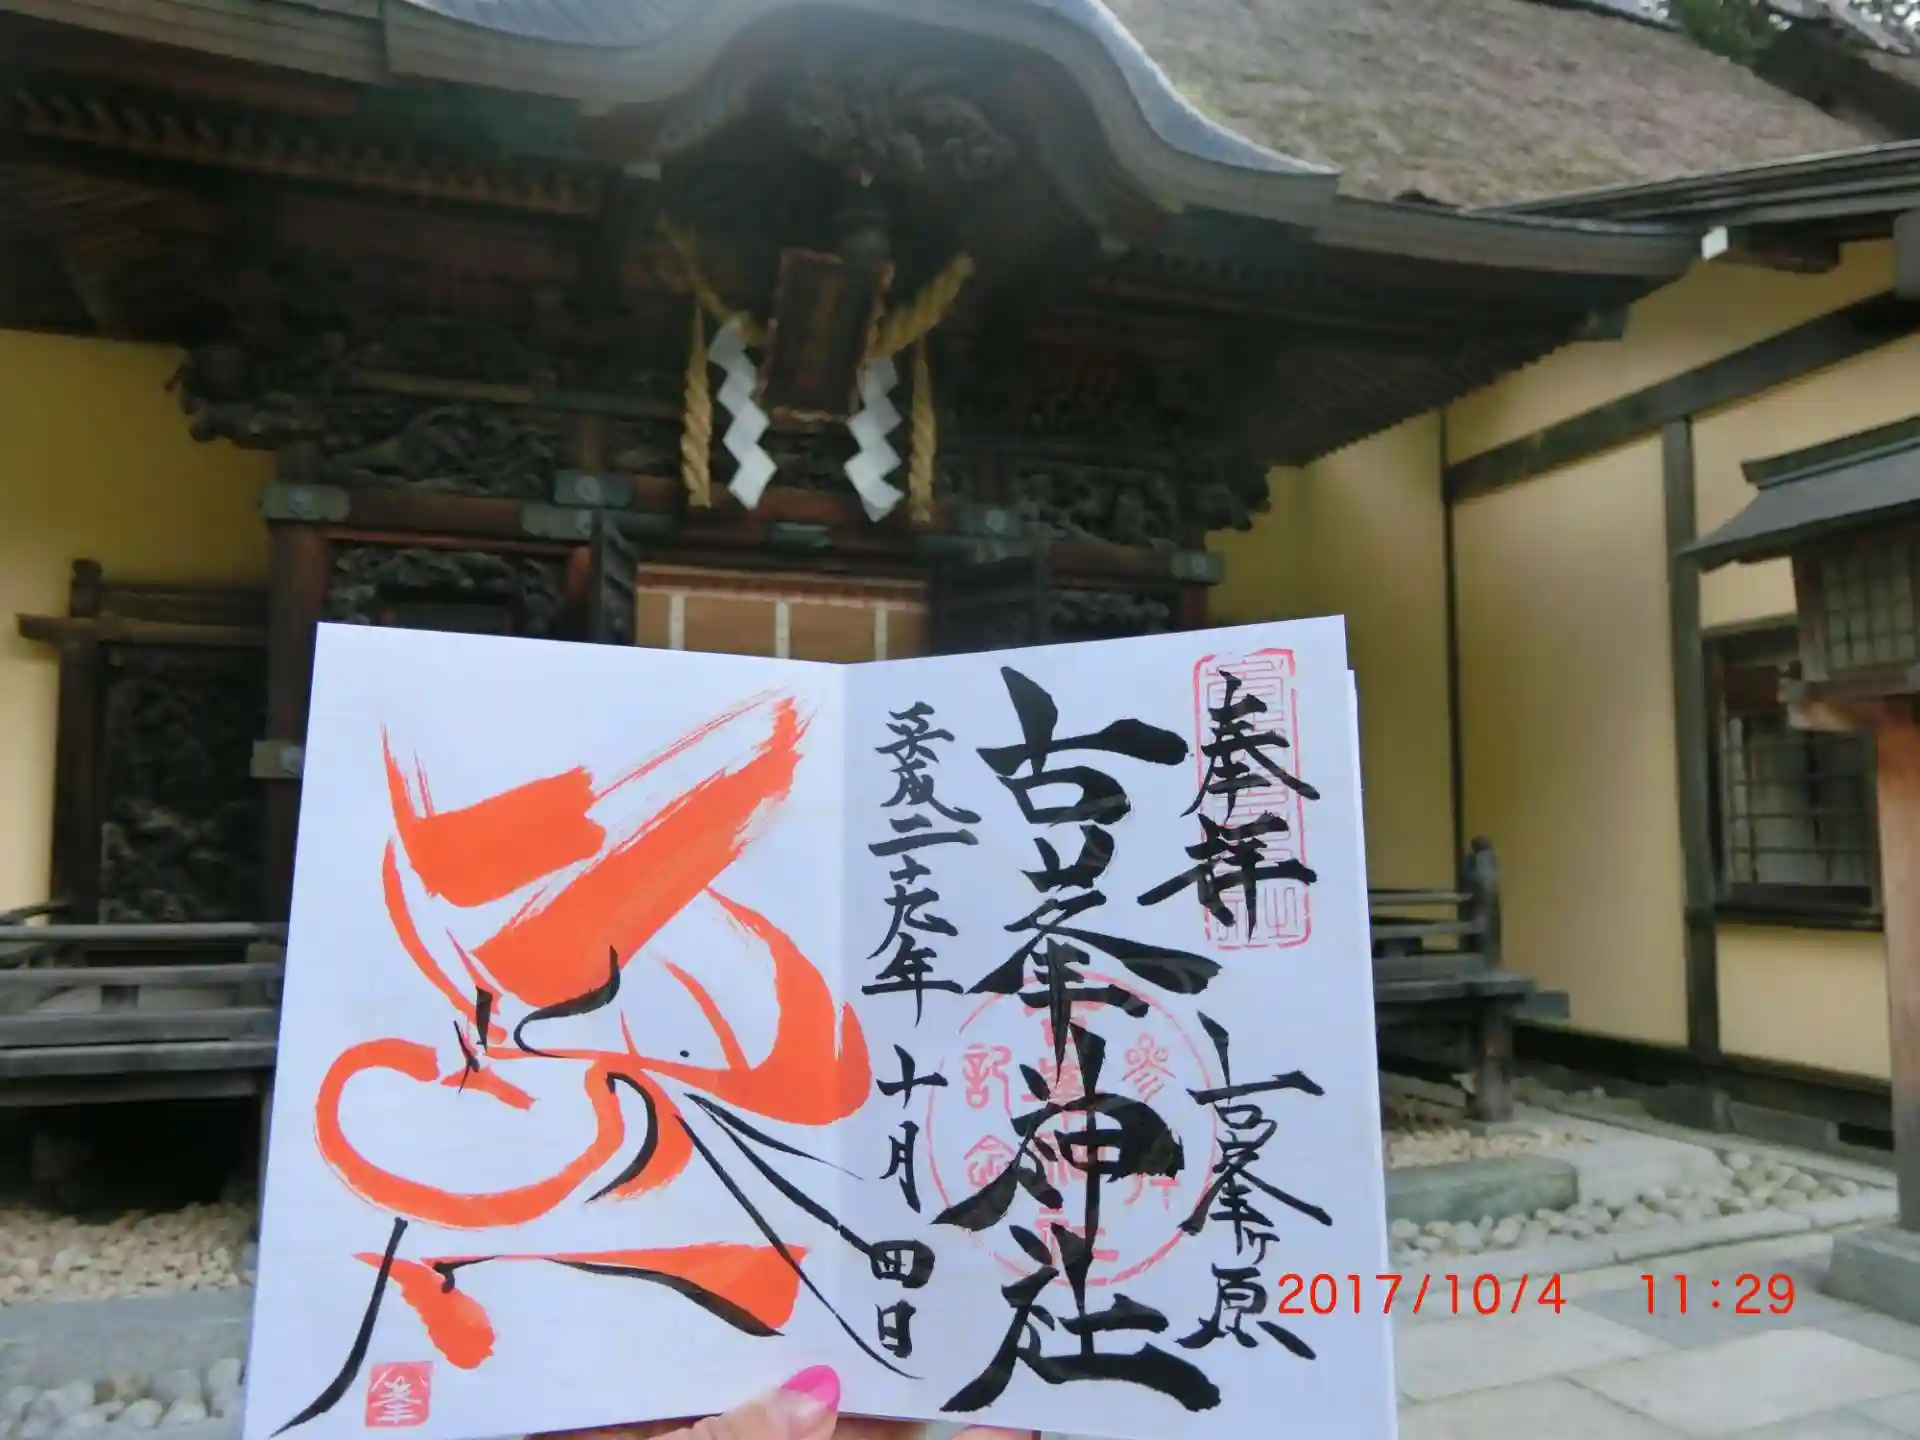 奉拝
古峯ヶ原
古峯神社
平成二十九年 十月 四日
2017/10/4 11:29